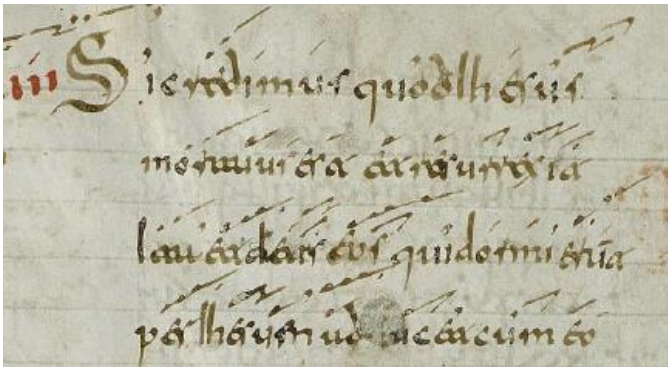 iii Si credimus quod Ihesus
mortuus est et resurrexit
ita et deus eos qui dormierut
per Ihesum cum eo